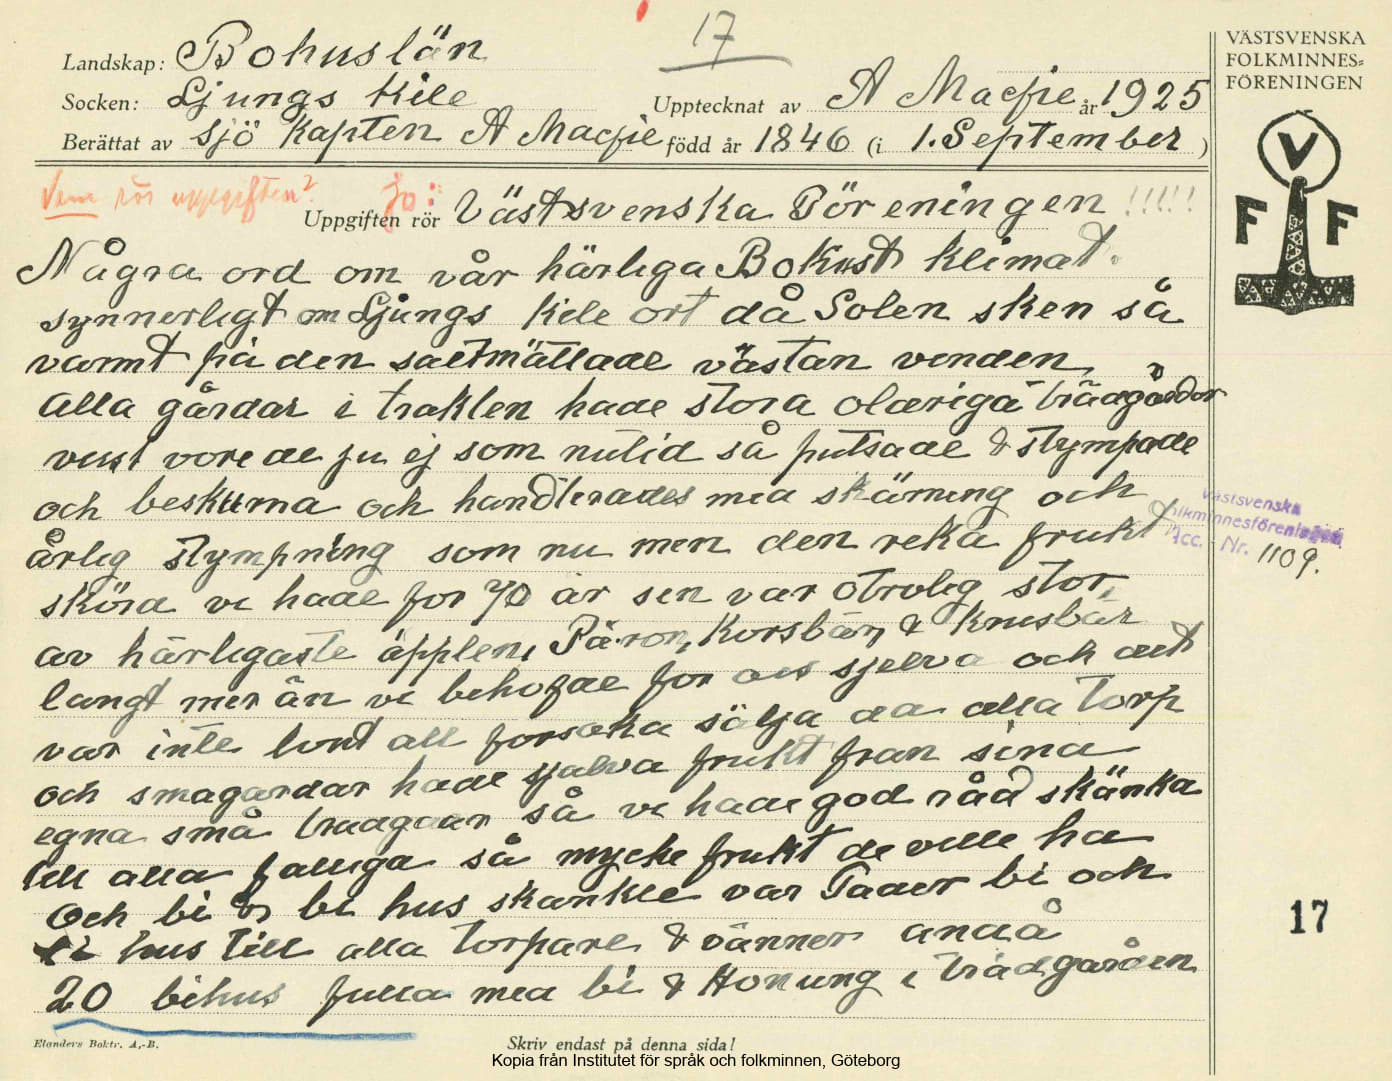 17
Landskap: Bohuslän
Socken: Ljungs Kile
Upptecknat av A Macfie år 1925
Berättat av sjö kapten A Macfie född år 1846 (i 1. September )
VÄSTSVENSKA
FOLKMINNES=
FÖRENINGEN
V
F F
Vem rör uppgiften? Jo:
Uppgiften rör Västsvenska Föreningen !!!!!
Några ord om vår härliga Bokust klimat.
synnerligt om Ljungs Kile ort då Solen sken så
varmt på den saltmättade västan venden
alla gårdar i traklen hade stora olderiga trädgårdor
visst vore de ju ej som nutid så putsade & stympade
och beskurna och handlerades med skärning och
årlig stympning som nu men den reka frukt
skörd vi hade for 70 år sen var otrolig stor,
av härligaste äpplen, Päron, Korsbär, & Krusbär
langt mer än vi behofde for oss sjelva och det
var inte lont att forsöka sälja da alla torp
och smagardar hade sjalva frukt fran sina
egna små tradgdar så vi hade god råd skänka
till alla fattiga så mycke frukt de ville ha
Och bi & bi hus skankte var Fader bi och
hus till alla torpare & vänner andå
20 bihus fulla med bi & Honung i trädgården
Västsvenska
folkminnesföreningen
Acc. - Nr. 1109.
17
Elanders Boktr. A.-B.
Skriv endast på denna sida!
Kopia från Institutet för språk och folkminnen, Göteborg